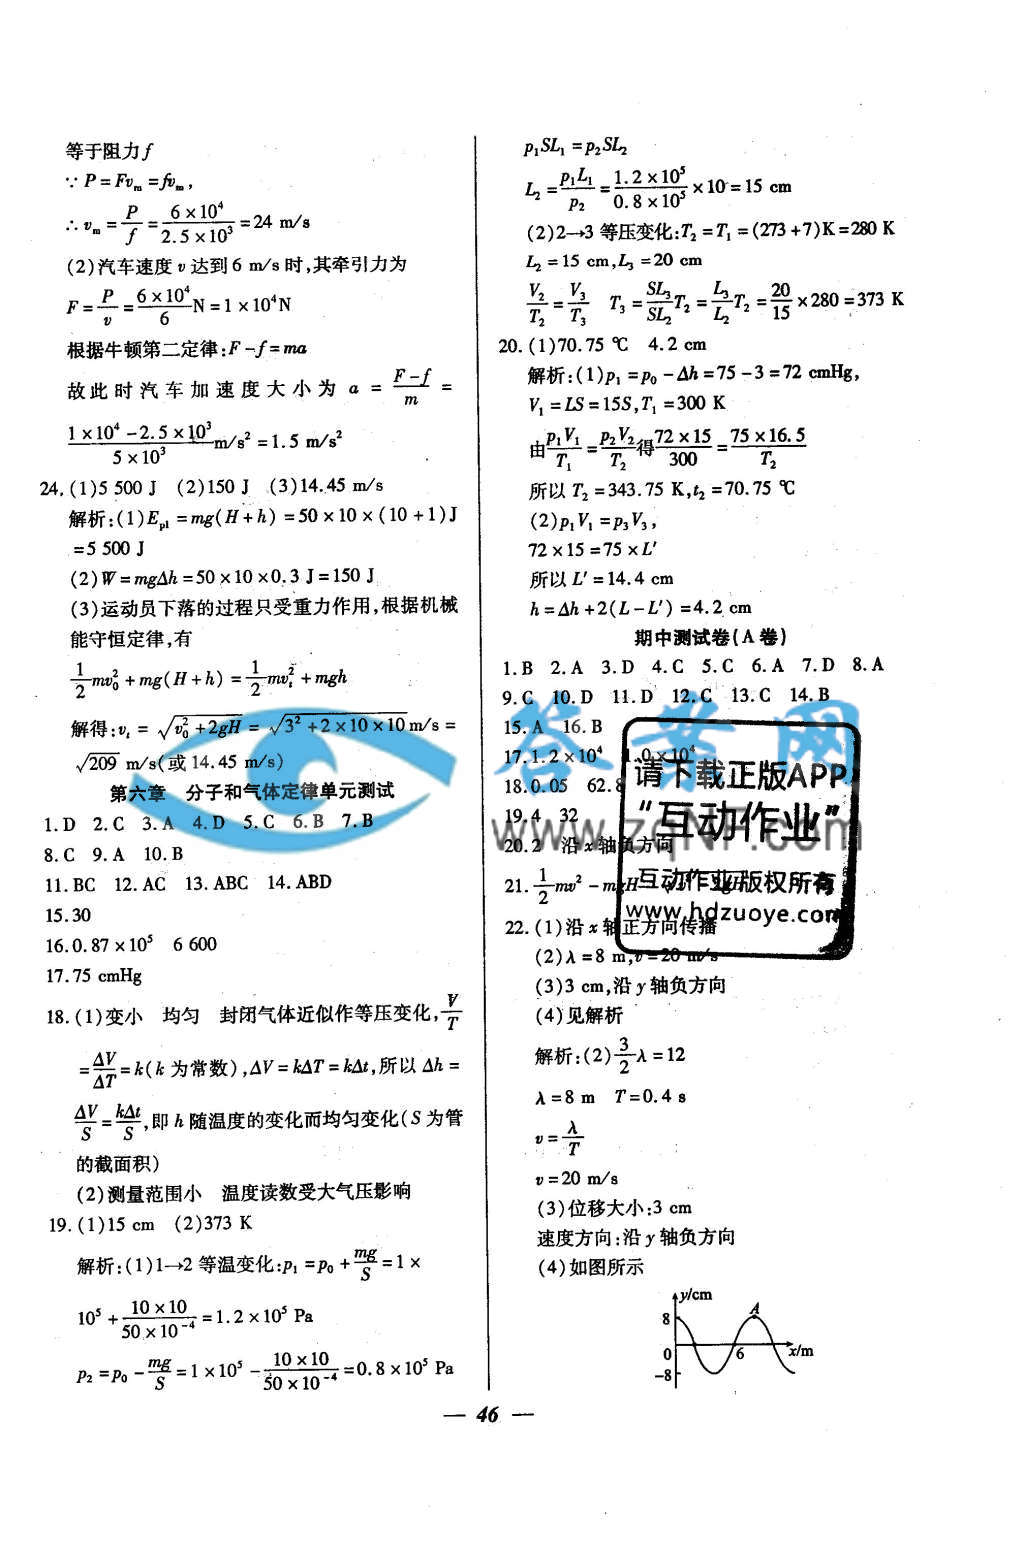 等于阻力f
∵P=Fvₘ=fvₘ,
∴vₘ=P/f=6×10⁴/2.5×10³=24 m/s
(2)汽车速度v达到6 m/s时,其牵引力为
F=P/v=6×10⁴/6 N=1×10⁴N
根据牛顿第二定律:F-f=ma
故此时汽车加速度大小为 a=(F-f)/m=
(1×10⁴-2.5×10³)/(5×10³) m/s²=1.5 m/s²
24.(1)5 500 J (2)150 J (3)14.45 m/s
解析:(1)Eₚ₁=mg(H+h)=50×10×(10+1)J
=5 500 J
(2)W=mgΔh=50×10×0.3 J=150 J
(3)运动员下落的过程只受重力作用,根据机械
能守恒定律,有
1/2 mv₀²+mg(H+h)=1/2 mvₜ²+mgh
解得:vₜ=√(v₀²+2gH)=√(3²+2×10×10) m/s=
√209 m/s(或14.45 m/s)
第六章 分子和气体定律单元测试
1.D 2.C 3.A 4.D 5.C 6.B 7.B
8.C 9.A 10.B
11.BC 12.AC 13.ABC 14.ABD
15.30
16.0.87×10⁵ 6 600
17.75 cmHg
18.(1)变小 均匀 封闭气体近似作等压变化,V/T
=ΔV/ΔT=k(k为常数),ΔV=kΔT=kΔt,所以Δh=
ΔV/S=kΔt/S,即h随温度的变化而均匀变化(S为管
的截面积)
(2)测量范围小 温度读数受大气压影响
19.(1)15 cm (2)373 K
解析:(1)1→2等温变化:p₁=p₀+mg/S=1×
10⁵+(10×10)/(50×10⁻⁴)=1.2×10⁵ Pa
p₂=p₀-mg/S=1×10⁵-(10×10)/(50×10⁻⁴)=0.8×10⁵ Pa
p₁SL₁=p₂SL₂
L₂=p₁L₁/p₂=(1.2×10⁵)/(0.8×10⁵)×10=15 cm
(2)2→3等压变化:T₂=T₁=(273+7)K=280 K
L₂=15 cm,L₃=20 cm
V₂/T₂=V₃/T₃ T₃=SL₃/SL₂ T₂=L₃/L₂ T₂=20/15×280=373 K
20.(1)70.75 ℃ 4.2 cm
解析:(1)p₁=p₀-Δh=75-3=72 cmHg,
V₁=LS=15S,T₁=300 K
由p₁V₁/T₁=p₂V₂/T₂得(72×15)/300=(75×16.5)/T₂
所以T₂=343.75 K,t₂=70.75 ℃
(2)p₁V₁=p₃V₃,
72×15=75×L′
所以L′=14.4 cm
h=Δh+2(L-L′)=4.2 cm
期中测试卷(A卷)
1.B 2.A 3.D 4.C 5.C 6.A 7.D 8.A
9.C 10.D 11.D 12.C 13.C 14.B
15.A 16.B
17.1.2×10⁴ 1.0×10⁴
18.0.05 62.8
19.4 32
20.2 沿x轴负方向
21.1/2 mv²-mgH
22.(1)沿x轴正方向传播
(2)λ=8 m,v=20 m/s
(3)3 cm,沿y轴负方向
(4)见解析
解析:(2)3/2 λ=12
λ=8 m T=0.4 s
v=λ/T
v=20 m/s
(3)位移大小:3 cm
速度方向:沿y轴负方向
(4)如图所示
y/cm
A
8
0
6
x/m
-8
— 46 —
答案网
www.zqNF.com
请下载正版APP
"互动作业"
互动作业版权所有
www.hdzuoye.com